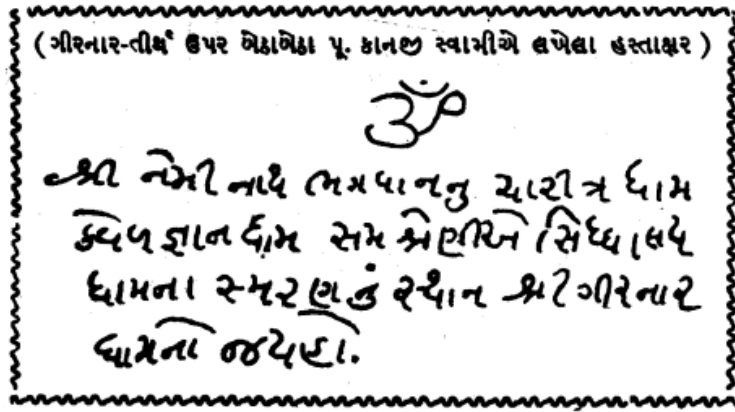 (ગીરનાર-તીર્થ ઉપર બેઠાબેઠા પૂ. કાનજી સ્વામીએ લખેલા હસ્તાક્ષર)
ૐ
શ્રી નેમીનાથ ભગવાનનુ ચારીત્ર ધામ
કેવળજ્ઞાન ધામ સમશ્રેણીએ સિધ્ધાલય
ધામના સ્મરણનું સ્થાન શ્રી ગીરનાર
ધામનો જયહો.